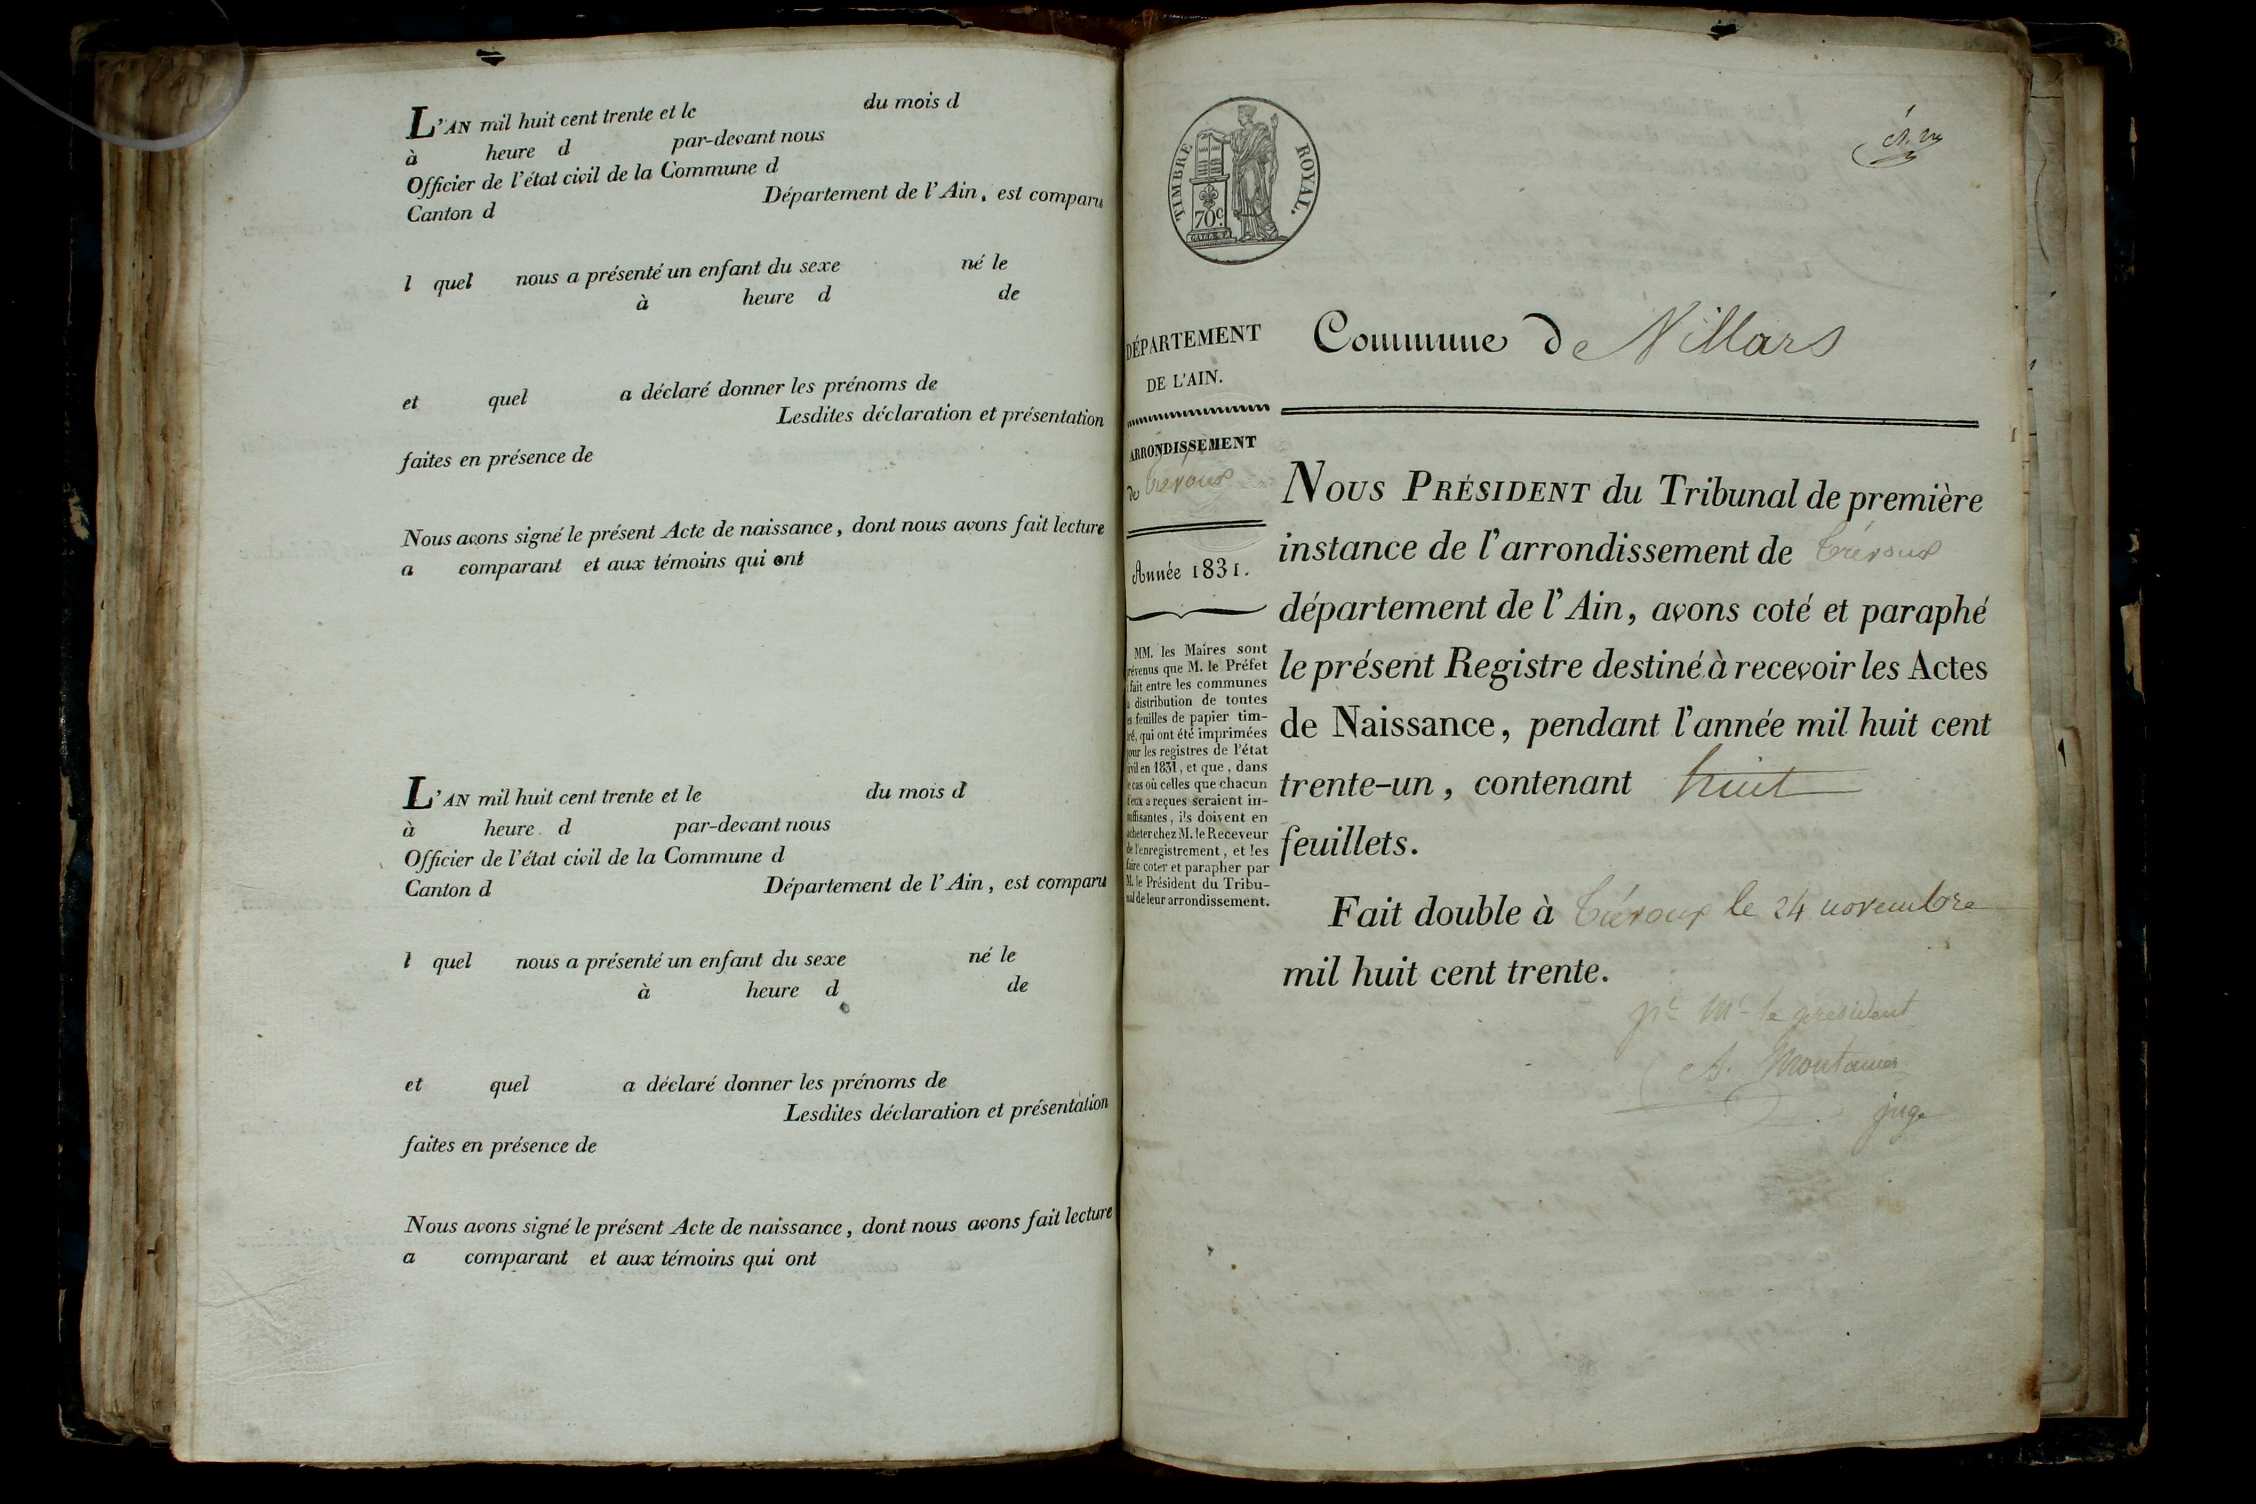 L'AN mil huit cent trente et le du mois d
à heure d par-devant nous
Officier de l'état civil de la Commune d
Canton d Département de l'Ain, est comparu
l quel nous a présenté un enfant du sexe né le
à heure d de
et quel a déclaré donner les prénoms de
Lesdites déclaration et présentation
faites en présence de
Nous avons signé le présent Acte de naissance, dont nous avons fait lecture
a comparant et aux témoins qui ont
L'AN mil huit cent trente et le du mois d
à heure d par-devant nous
Officier de l'état civil de la Commune d
Canton d Département de l'Ain, est comparu
l quel nous a présenté un enfant du sexe né le
à heure d de
et quel a déclaré donner les prénoms de
Lesdites déclaration et présentation
faites en présence de
Nous avons signé le présent Acte de naissance, dont nous avons fait lecture
a comparant et aux témoins qui ont
TIMBRE ROYAL.
70c.
DÉPARTEMENT
DE L'AIN.
ARRONDISSEMENT
de Trévoux
Année 1831.
MM. les Maires sont
révenus que M. le Préfet
fait entre les communes
distribution de toutes
feuilles de papier tim-
ré, qui ont été imprimées
our les registres de l'état
ivil en 1831, et que, dans
e cas où celles que chacun
d'eux a reçues seraient in-
suffisantes, ils doivent en
acheter chez M. le Receveur
de l'enregistrement, et les
faire coter et parapher par
M. le Président du Tribu-
nal de leur arrondissement.
Commune de Villars
NOUS PRÉSIDENT du Tribunal de première
instance de l'arrondissement de Trévoux
département de l'Ain, avons coté et paraphé
le présent Registre destiné à recevoir les Actes
de Naissance, pendant l'année mil huit cent
trente-un, contenant huit
feuillets.
Fait double à Trévoux le 24 novembre
mil huit cent trente.
pr Mr le président
Montanier
juge